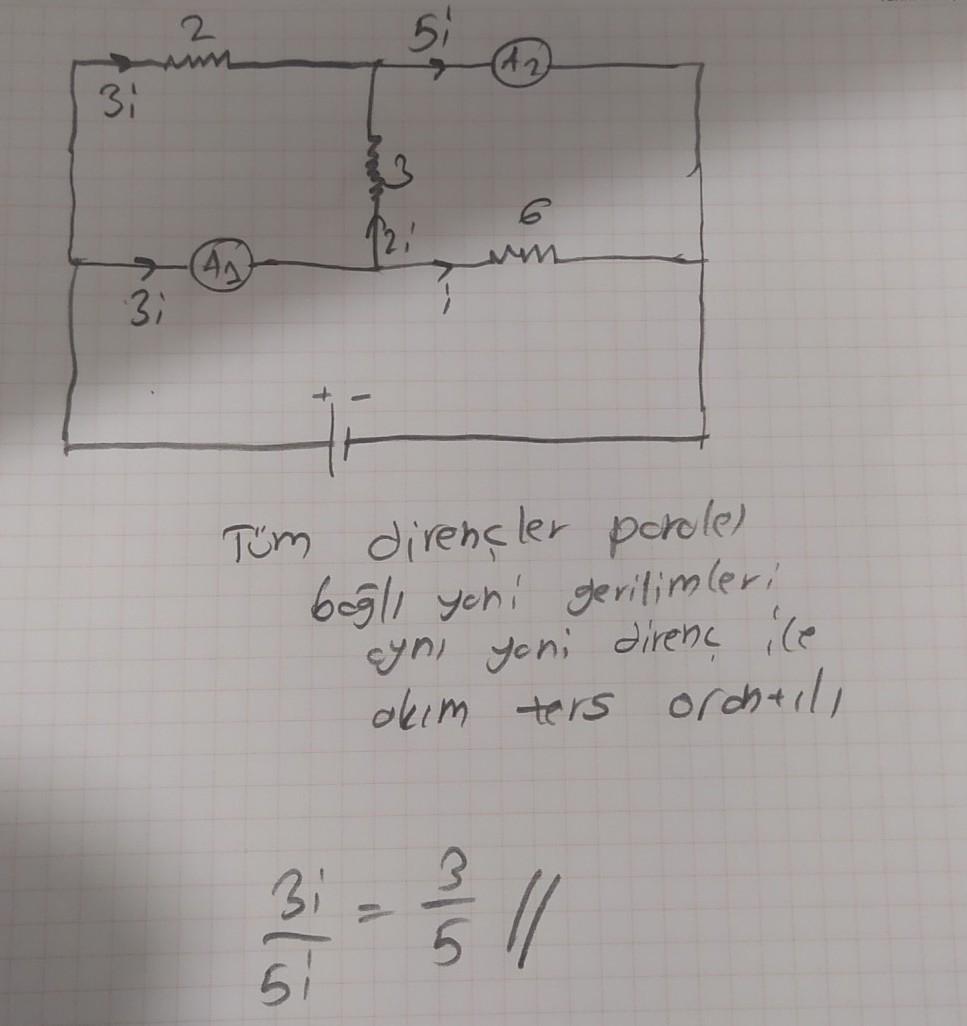 2
5i
A2
3i
3
6
2i
A1
3i
i
+ -
Tüm dirençler paralel
bağlı yani gerilimleri
aynı yani direnç ile
akım ters orantılı
3i/5i = 3/5 //